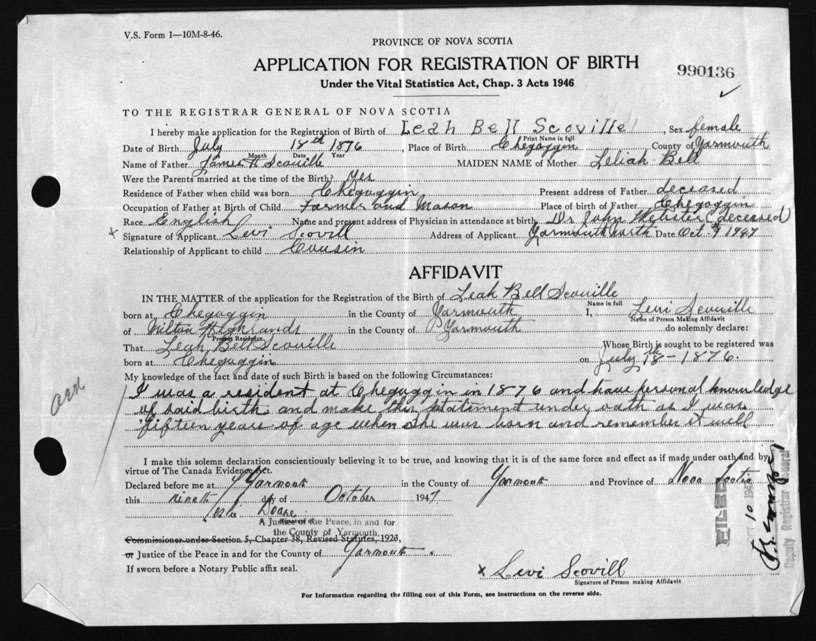 V.S. Form 1—10M-8-46.
PROVINCE OF NOVA SCOTIA
APPLICATION FOR REGISTRATION OF BIRTH
990136
Under the Vital Statistics Act, Chap. 3 Acts 1946
TO THE REGISTRAR GENERAL OF NOVA SCOTIA
I hereby make application for the Registration of Birth of Leah Bell Scoville Sex female
Print Name in full
Date of Birth July 18th 1876, Place of Birth Chegoggin County of Yarmouth
Month Date Year
Name of Father James H Scoville MAIDEN NAME of Mother Leliah Bell
Were the Parents married at the time of the Birth? Yes
Residence of Father when child was born Chegoggin Present address of Father deceased
Occupation of Father at Birth of Child Farmer and Mason Place of birth of Father Chegoggin
Race English Name and present address of Physician in attendance at birth Dr John Webster (deceased)
x Signature of Applicant Levi Scovill Address of Applicant Yarmouth North Date Oct 9 1947
Relationship of Applicant to child Cousin
AFFIDAVIT
IN THE MATTER of the application for the Registration of the Birth of Leah Bell Scoville
Name in full
born at Chegoggin in the County of Yarmouth I, Levi Scoville
Name of Person Making Affidavit
of Milton Highlands in the County of Yarmouth do solemnly declare:
Present Residence
That Leah Bell Scoville Whose Birth is sought to be registered was
born at Chegoggin on July 18th - 1876.
My knowledge of the fact and date of such Birth is based on the following Circumstances:
I was a resident at Chegoggin in 1876 and have personal knowledge
of said birth and make this statement under oath as I was
fifteen years of age when she was born and remember it well
I make this solemn declaration conscientiously believing it to be true, and knowing that it is of the same force and effect as if made under oath and by
virtue of The Canada Evidence Act.
Declared before me at Yarmouth in the County of Yarmouth and Province of Nova Scotia
this ninth day of October 1947
Leslie Doane
A Justice of the Peace, in and for
the County of Yarmouth.
Commissioner under Section 5, Chapter 38, Revised Statutes, 1923,
or Justice of the Peace in and for the County of Yarmouth.
If sworn before a Notary Public affix seal.
x Levi Scovill
Signature of Person making Affidavit
For Information regarding the filling out of this Form, see instructions on the reverse side.
FILED
Deputy Registrar General